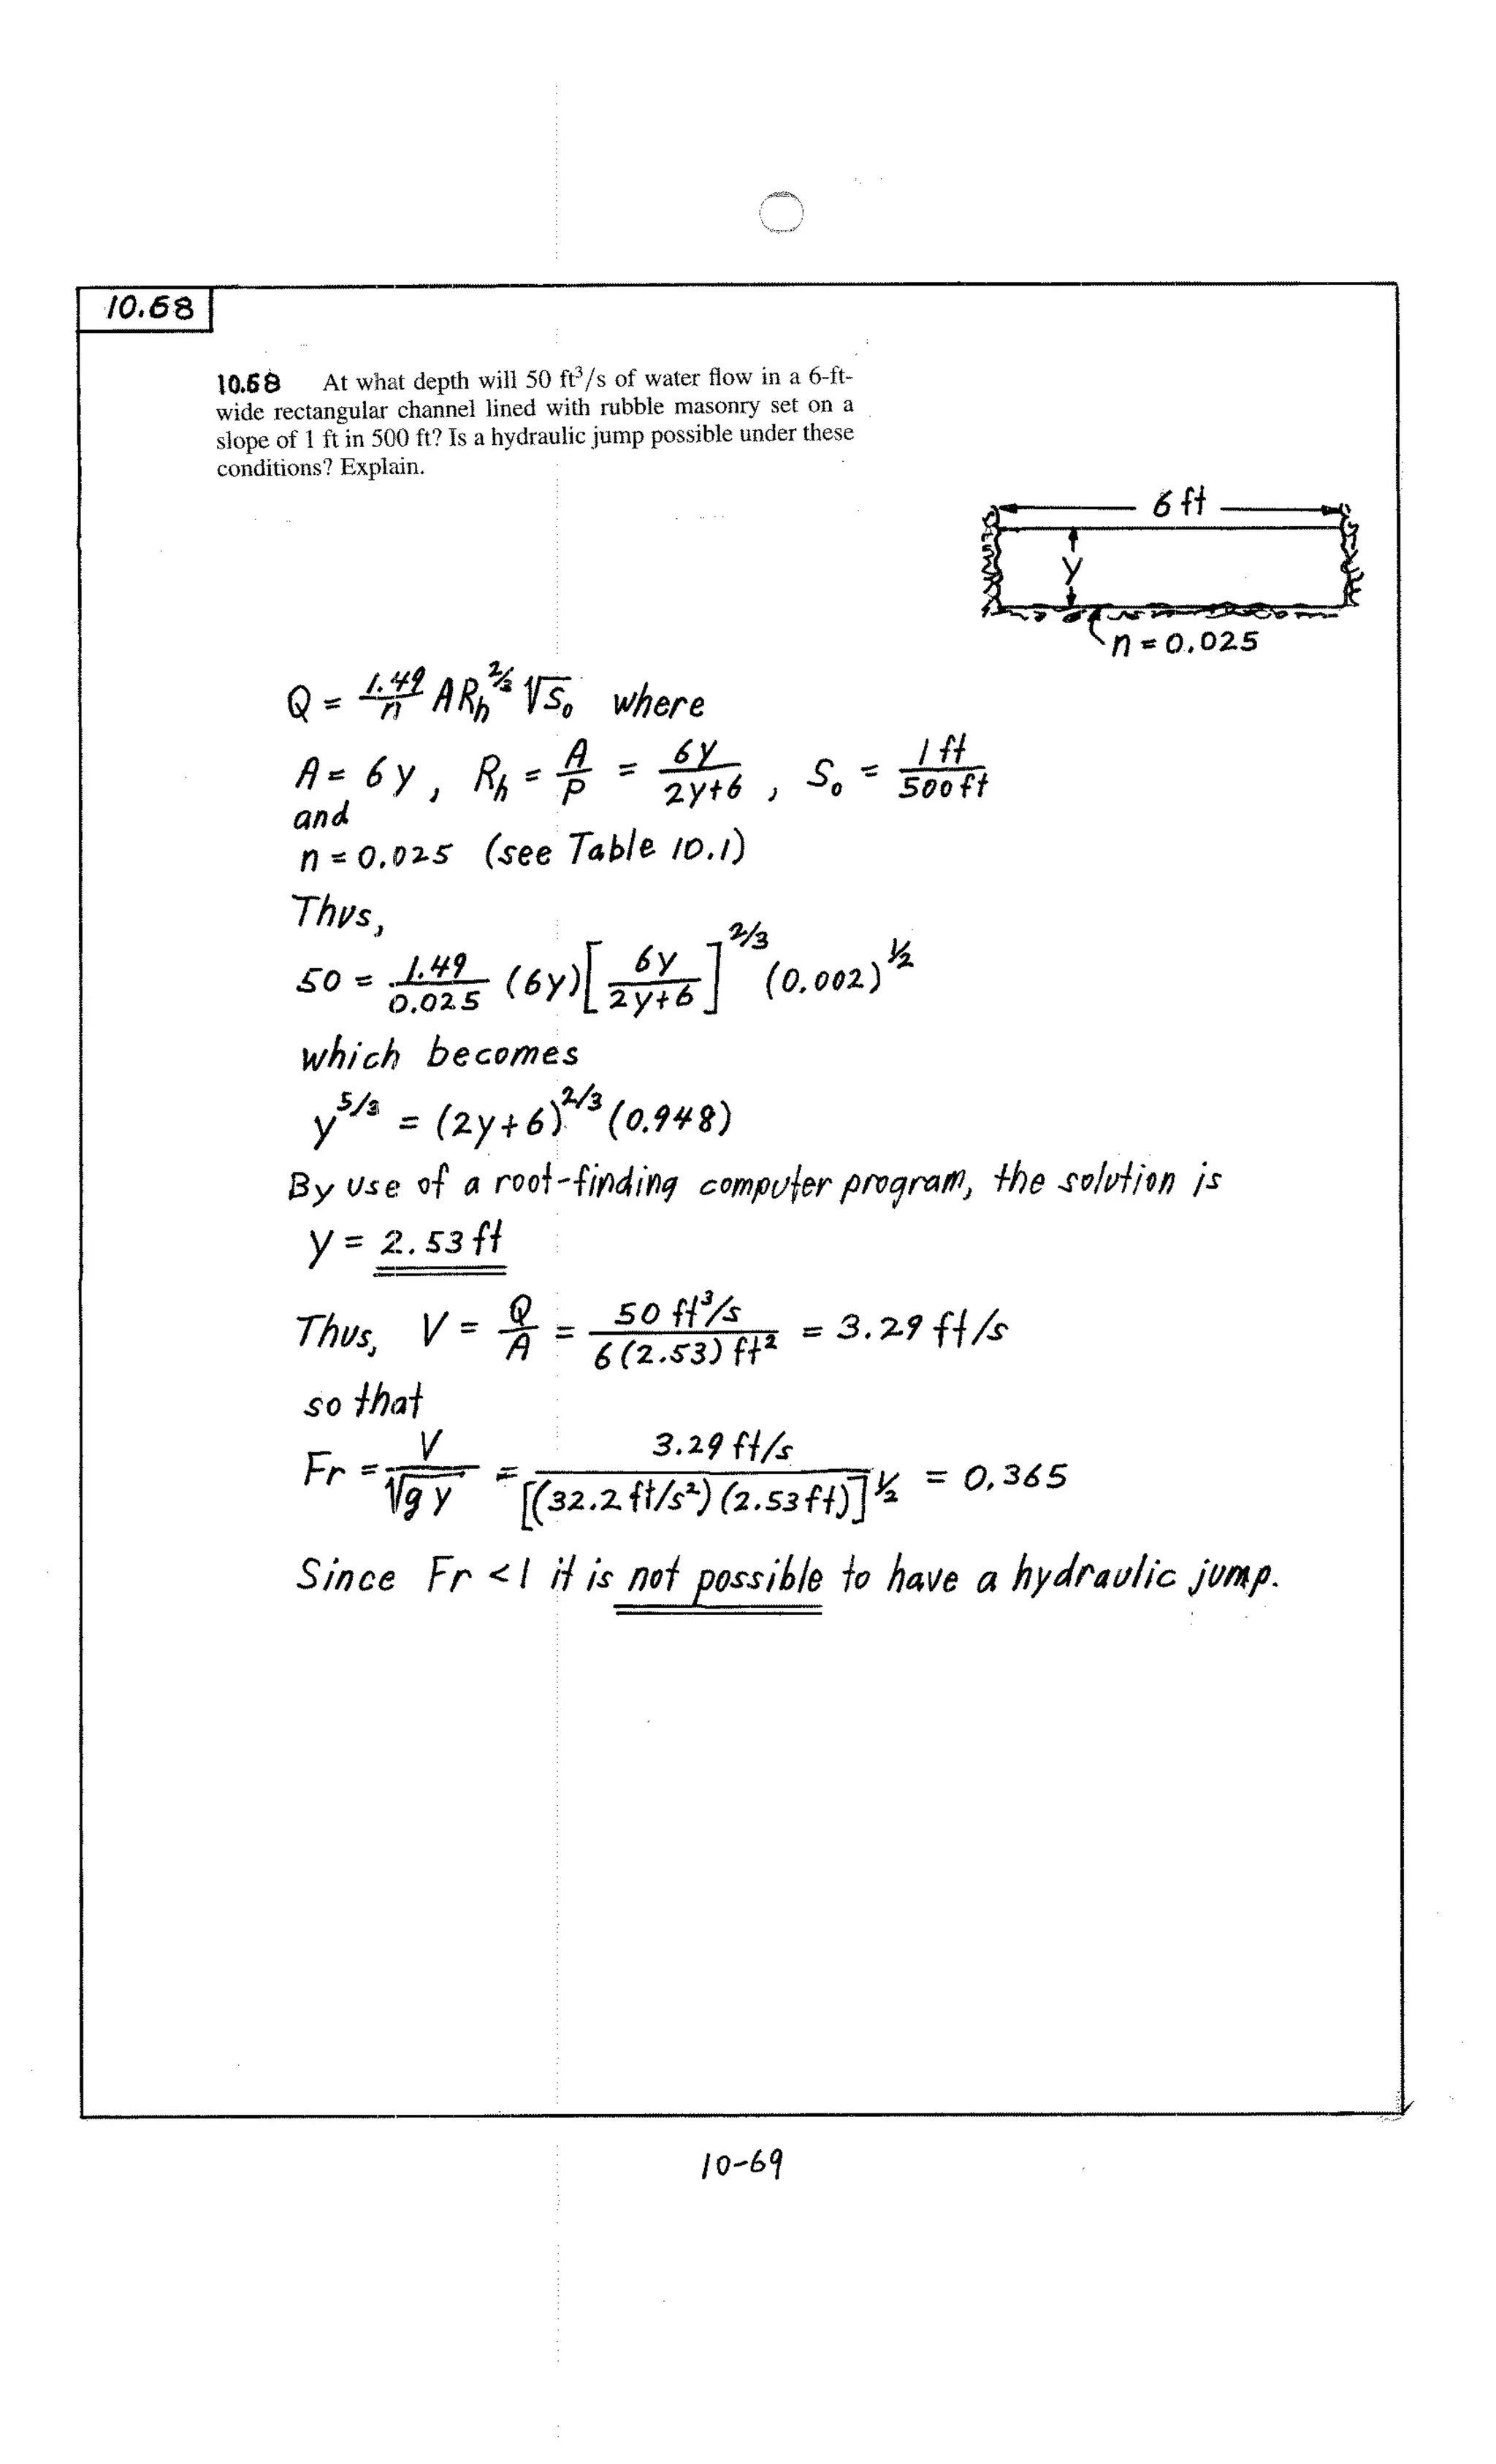 10.68
10.68 At what depth will 50 ft³/s of water flow in a 6-ft-
wide rectangular channel lined with rubble masonry set on a
slope of 1 ft in 500 ft? Is a hydraulic jump possible under these
conditions? Explain.
6 ft
y
n = 0.025
Q = 1.49/n A R_h^(2/3) √S₀ where
A = 6y, R_h = A/P = 6y/(2y+6), S₀ = 1 ft/500 ft
and
n = 0.025 (see Table 10.1)
Thus,
50 = 1.49/0.025 (6y)[6y/(2y+6)]^(2/3) (0.002)^(1/2)
which becomes
y^(5/3) = (2y+6)^(2/3) (0.948)
By use of a root-finding computer program, the solution is
y = 2.53 ft
Thus, V = Q/A = 50 ft³/s / 6(2.53) ft² = 3.29 ft/s
so that
Fr = V/√(g y) = 3.29 ft/s / [(32.2 ft/s²)(2.53 ft)]^(1/2) = 0.365
Since Fr < 1 it is not possible to have a hydraulic jump.
10-69